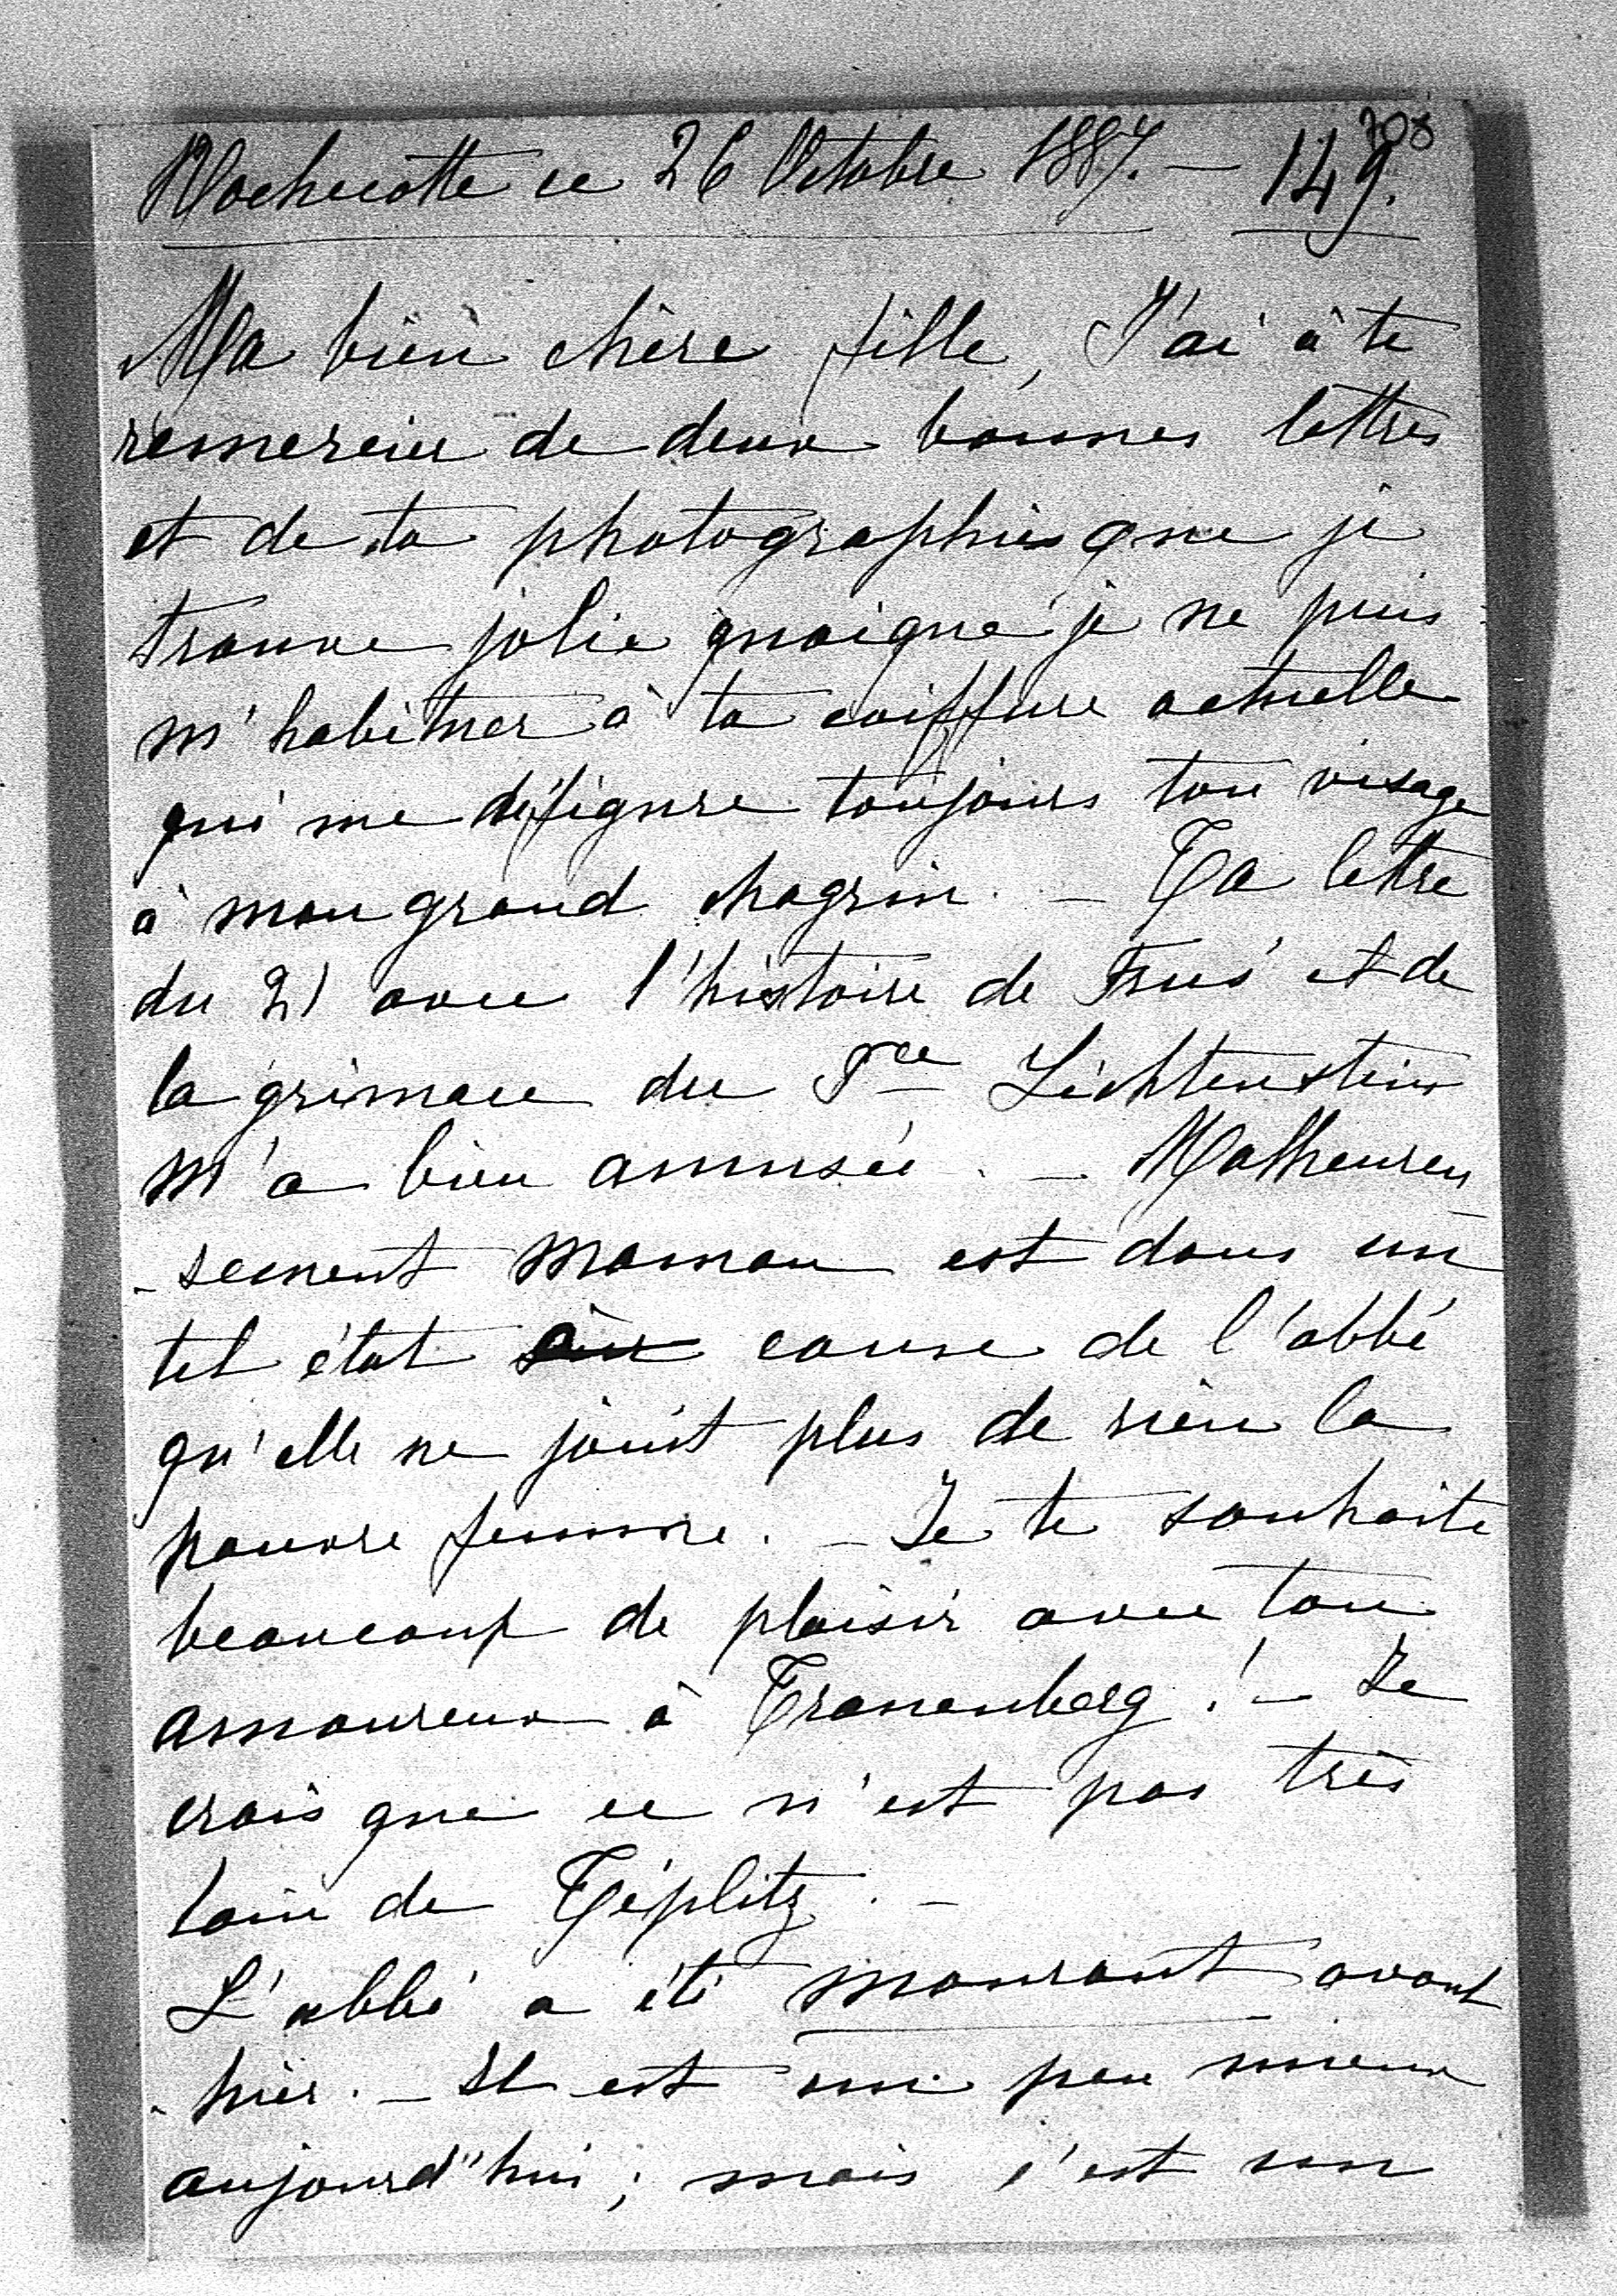 708
Rochecotte ce 26 Octobre 1887. — 149.
Ma bien chère fille, J'ai à te
remercier de deux bonnes lettres
et de ta photographie que je
trouve jolie quoique je ne puis
m'habituer à ta coiffure actuelle
qui me défigure toujours ton visage
à mon grand chagrin. — Ta lettre
du 21 avec l'histoire de et de
la grimace du Pce Lichtenstein
m'a bien amusée. — Malheureu
-sement maman est dans un
tel état à cause de l'abbé
qu'elle ne jouit plus de rien la
pauvre femme. — Je te souhaite
beaucoup de plaisir avec ton
amoureux à Tranenberg! — Je
crois que ce n'est pas très
loin de Téplitz. —
L'abbé a été mourant avant
-hier. — Il est un peu mieux
aujourd'hui; mais c'est un